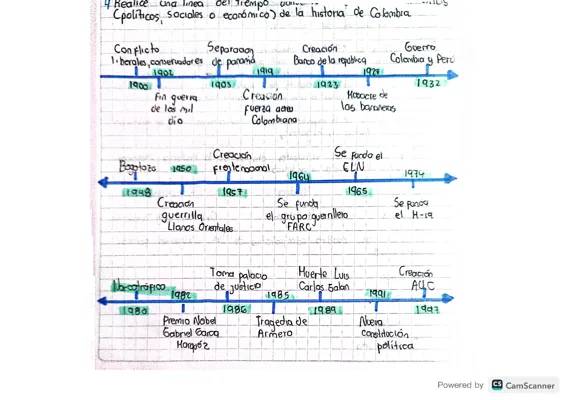 4 Realice una linea del tiempo
(políticos, sociales o económico) de la historia de Colombia
Conflicto Separacion Creación Guerra
liberales, conservadores de panamá Banco de la republica Colombia y Perú
1902 1919 1928
1900 1903 1923 1932
Fin guerra Creación Masacre de
de los mil fuerza aerea las bananeras
dia Colombiana
Creación Se fundo el
Bogotazo 1950 frente nacional 1964 ELN 1974
1948 1957 1965
Creacion Se funda Se funda
guerrilla el grupo guerrillero el M-19
Llanos Orientales "FARC"
Toma palacio Muerte Luis Creación
Narcotráfico 1982 de justicia 1985 Carlos Galan 1991 AUC
1980 1986 1989 1997
Premio Nobel Tragedia de Nueva
Gabriel Garcia Armero constitución
política
Powered by CS CamScanner